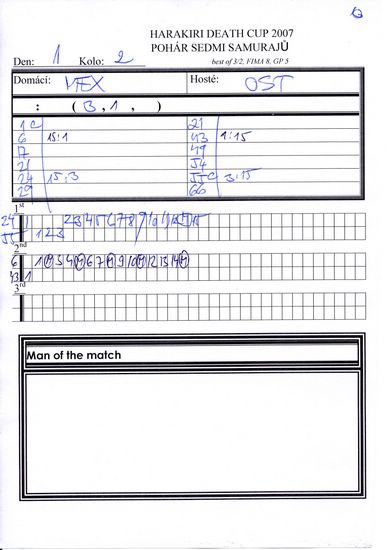 HARAKIRI DEATH CUP 2007
POHÁR SEDMI SAMURAJŮ
Den: 1 Kolo: 2
best of 3/2, FIMA 8, GP 5
Domácí: MEX Hosté: OST
: ( 3 , 1 , )
1 C 21
6 15:1 43 1:15
17 49
21 54
24 15:3 55C 3:15
29 66
1st
24 1 2 3 4 5 6 7 8 9 10 11 12 13 14 15
55 1 2 3
2nd
6 1 3 4 6 7 9 10 12 13 14
43 1
3rd
Man of the match